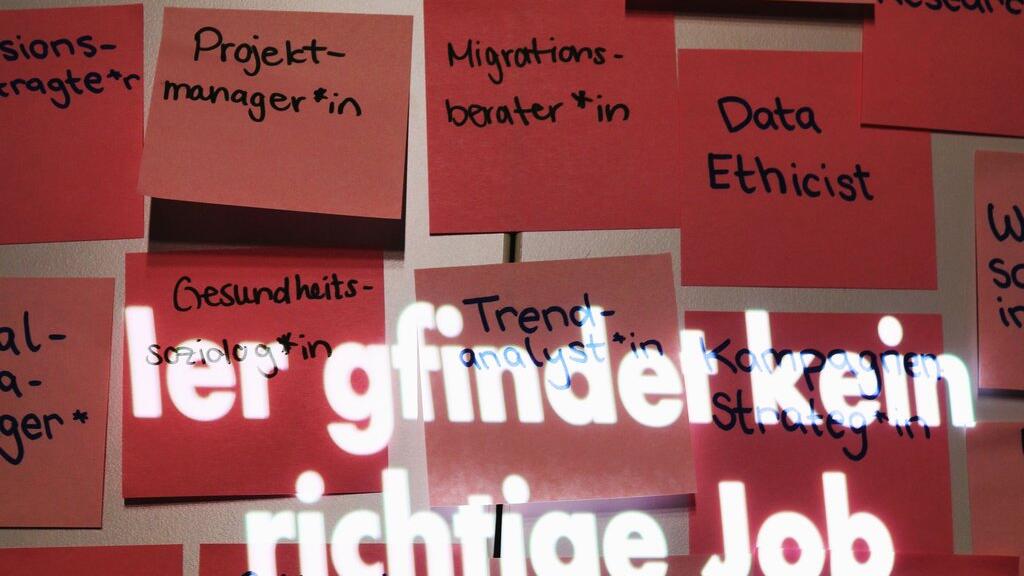 sions-
tragte*r
Projekt-
manager*in
Migrations-
berater*in
Data
Ethicist
Research
al-
a-
ger*
Gesundheits-
soziolog*in
Trend-
analyst*in
Kampagnen
Strateg*in
W
so
in
ler gfindet kein
richtige Job